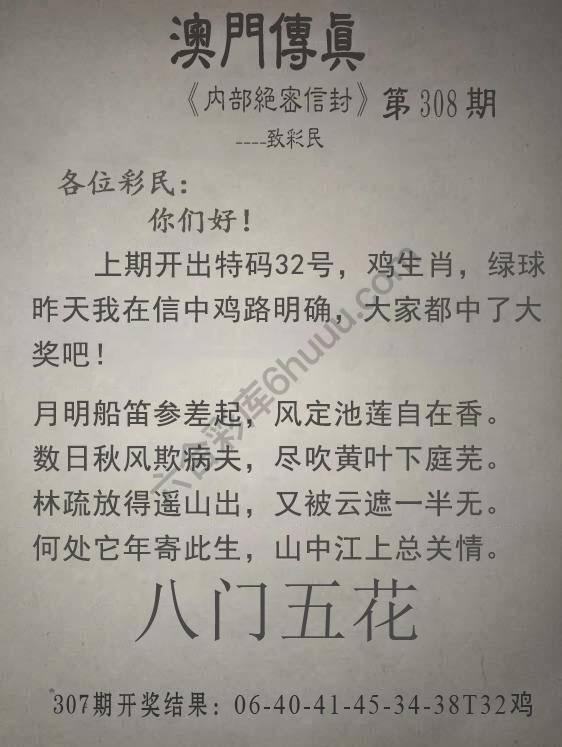 澳門傳眞
《内部絕密信封》第308期
----致彩民
各位彩民：
你们好！
上期开出特码32号，鸡生肖，绿球
昨天我在信中鸡路明确，大家都中了大
奖吧！
月明船笛参差起，风定池莲自在香。
数日秋风欺病夫，尽吹黄叶下庭芜。
林疏放得遥山出，又被云遮一半无。
何处它年寄此生，山中江上总关情。
八门五花
307期开奖结果：06-40-41-45-34-38T32鸡
六合彩库6huuu.com